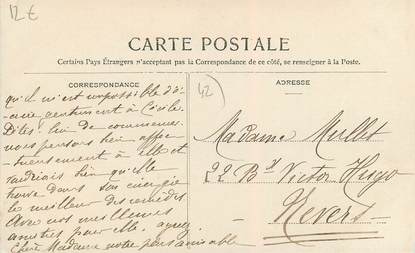 12 €
CARTE POSTALE
Certains Pays Étrangers n'acceptant pas la Correspondance de ce côté, se renseigner à la Poste.
CORRESPONDANCE
ADRESSE
42
qu'il m'est impossible d'é-
gentiment à Cécile.
Dites lui de
nous pensons bien affec-
tueusement à elle et
voudrais bien qu'elle
trouve dans son énergie
le meilleur des remèdes
Avec nos meilleures
amitiés pour elle, ayez
Chère Madame notre
Madame Mullot
22 Bd Victor Hugo
Nevers